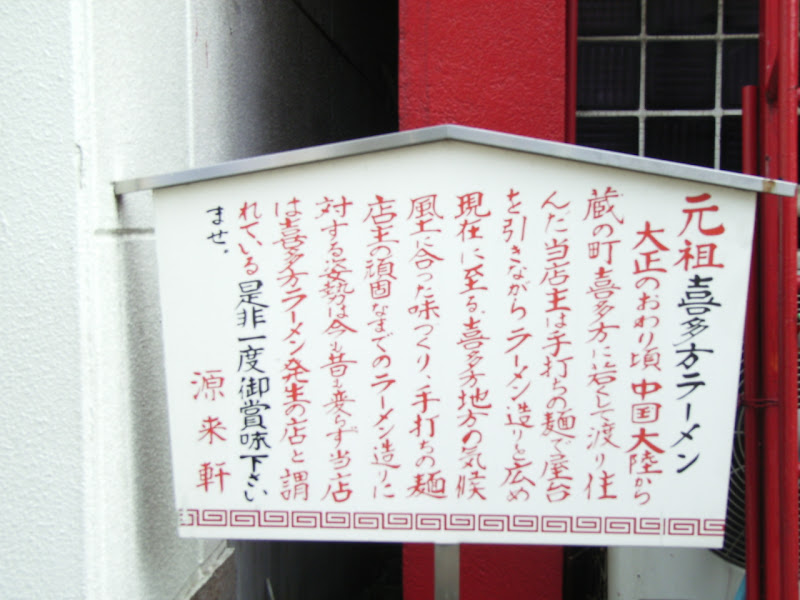 元祖喜多方ラーメン
大正のおわり頃中国大陸から
蔵の町喜多方に若くして渡り住
んだ当店主は手打ちの麺で屋台
を引きながらラーメン造りを広め
現在に至る、喜多方地方の気候
風土に合った味づくり、手打ちの麺
店主の頑固なまでのラーメン造りに
対する姿勢は今も昔も変らず当店
は喜多方ラーメン発生の店と謂
れている是非一度御賞味下さい
ませ。
源来軒